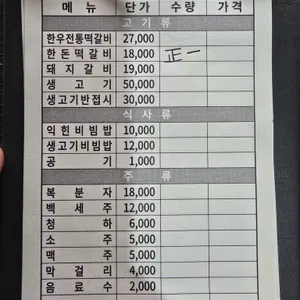 메 뉴 단가 수량 가격
고 기 류
한우전통떡갈비 27,000
한돈떡갈비 18,000 正一
돼지갈비 19,000
생고기 50,000
생고기반접시 30,000
식 사 류
익힌비빔밥 10,000
생고기비빔밥 12,000
공기 1,000
주 류
복분자 18,000
백세주 12,000
청하 6,000
소주 5,000
맥주 5,000
막걸리 4,000
음료수 2,000